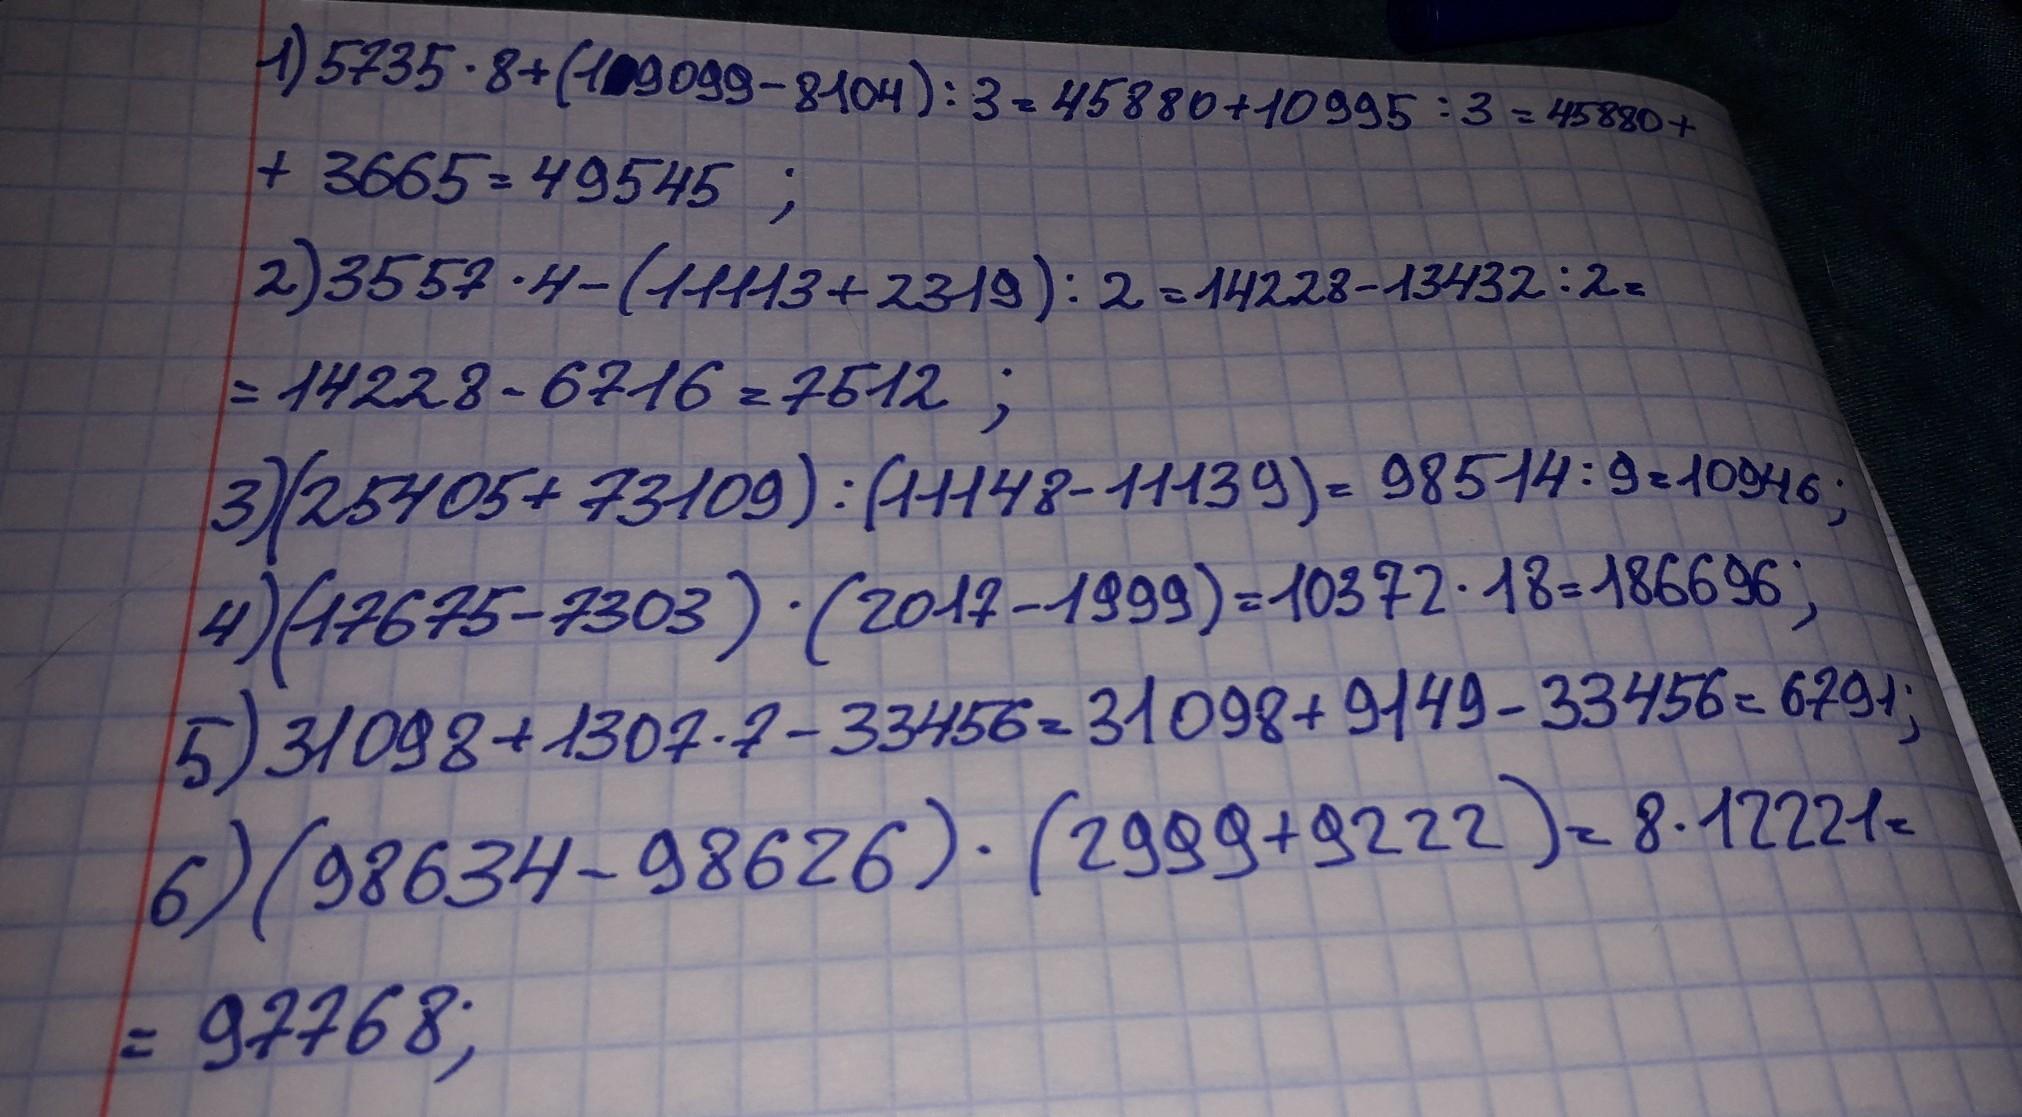 1) 5735 · 8 + (19099 - 8104) : 3 = 45880 + 10995 : 3 = 45880 +
+ 3665 = 49545 ;
2) 3557 · 4 - (11113 + 2319) : 2 = 14228 - 13432 : 2 =
= 14228 - 6716 = 7512 ;
3) (25405 + 73109) : (11148 - 11139) = 98514 : 9 = 10946;
4) (17675 - 7303) · (2017 - 1999) = 10372 · 18 = 186696;
5) 31098 + 1307 · 7 - 33456 = 31098 + 9149 - 33456 = 6791;
6) (98634 - 98626) · (2999 + 9222) = 8 · 12221 =
= 97768;